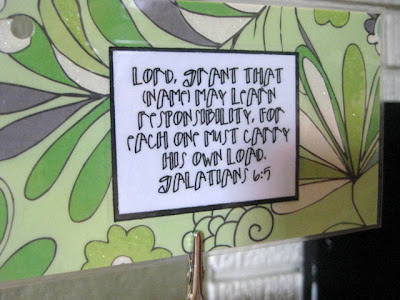 LORD, GRANT THAT
(NAME) MAY LEARN
RESPONSIBILITY, FOR
EACH ONE MUST CARRY
HIS OWN LOAD.
GALATIANS 6:5